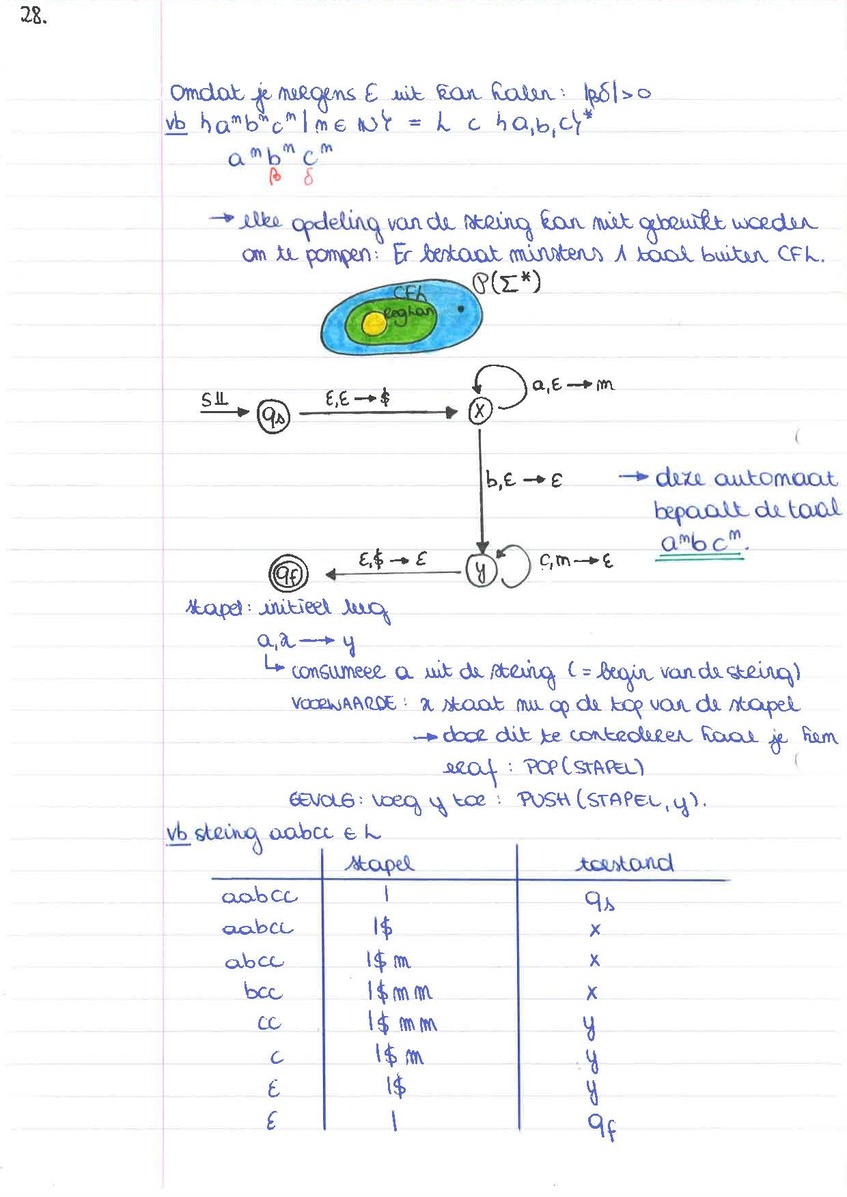 28.
Omdat je nergens ε uit kan halen: |βδ| > 0
vb {aⁿbⁿcⁿ | n ∈ ℕ} = L ⊂ {a,b,c}*
aⁿbⁿcⁿ
β δ
→ elke opdeling van de string kan niet gebruikt worden
om te pompen: Er bestaat minstens 1 taal buiten CFL.
P(Σ*)
CFL
Reglan
a,ε → m
ε,ε → $
qs
x
b,ε → ε
→ deze automaat
bepaalt de taal
aⁿbcⁿ.
ε,$ → ε
c,m → ε
qf
y
stapel: initieel leeg
a,x → y
↳ consumeer a uit de string (= begin van de string)
VOORWAARDE: x staat nu op de top van de stapel
→ door dit te controleren haal je hem
eraf: POP(STAPEL)
GEVOLG: voeg y toe: PUSH(STAPEL, y).
vb string aabcc ∈ L
stapel toestand
aabcc | qs
aabcc |$ x
abcc |$m x
bcc |$mm x
cc |$mm y
c |$m y
ε |$ y
ε | qf